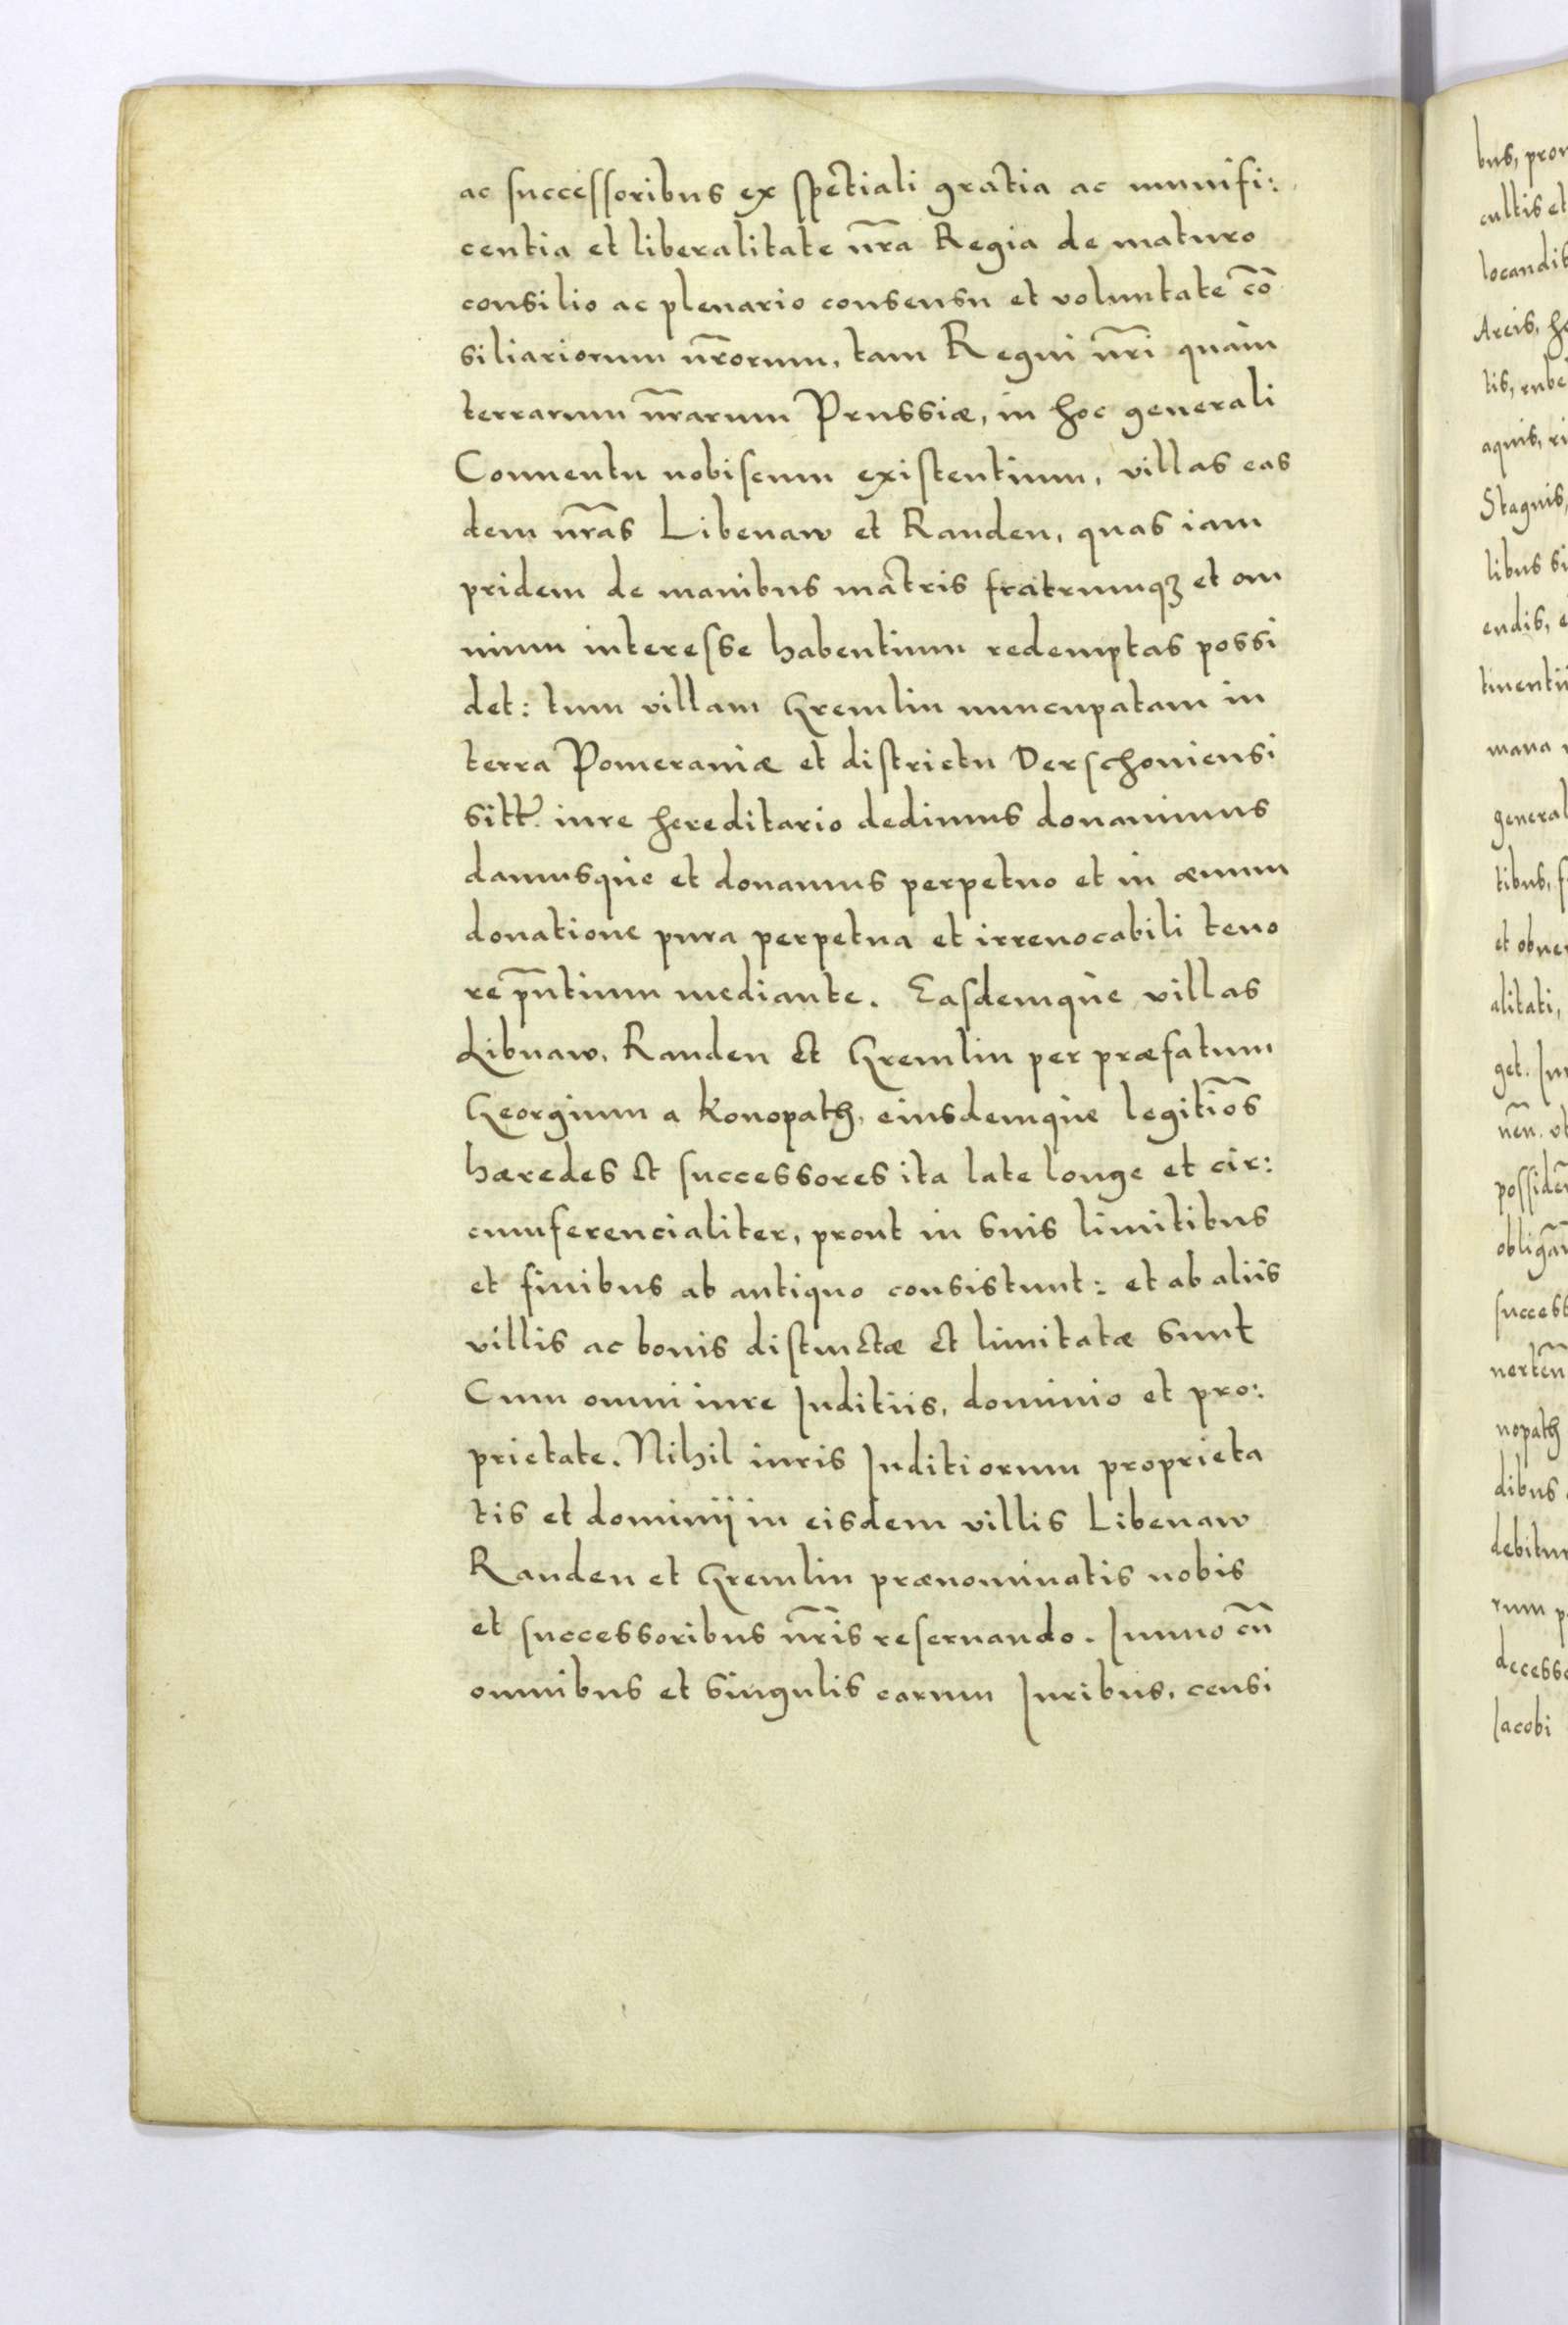 ac successoribus ex spetiali gratia ac munifi:
centia et liberalitate nr̃a Regia de maturo
consilio ac plenario consensu et voluntate cõ
siliariorum nr̃orum, tam Regni nr̃i quàm
terrarum nr̃arum Prussiæ, in hoc generali
Conuentu nobiscum existentium, villas eas
dem nr̃as Libenaw et Randen, quas iam
pridem de manibus matris fratrumqꝫ et om
nium interesse habentium redemptas possi
det: tum villam Gremlin nuncupatam in
terra Pomeraniæ et districtu Derschouiensi
sitt. iure hereditario dedimus donauimus
damusque et donamus perpetuo et in æuum
donatione pura perpetua et irreuocabili teno
re pñtium mediante. Easdemque villas
Libnaw, Randen et Gremlin per præfatum
Georgium a Konopath, eiusdemque legitĩos
hæredes et successores ita late longe et cir:
cumferencialiter, prout in suis limitibus
et finibus ab antiquo consistunt: et ab aliis
villis ac bonis distinctæ et limitatæ sunt
Cum omni iure Juditiis, dominio et pro:
prietate. Nihil iuris Juditiorum proprieta
tis et dominij in eisdem villis Libenaw
Randen et Gremlin prænominatis nobis
et successoribus nr̃is reseruando. Immo cũ
omnibus et singulis earum Juribus, censi
bus,
cultis et
Arcis,
tis,
aquis,
Stagnis,
libus
endis,
mana
tibus,
alitati,
get.
nopath
dibus
rum
Jacobi